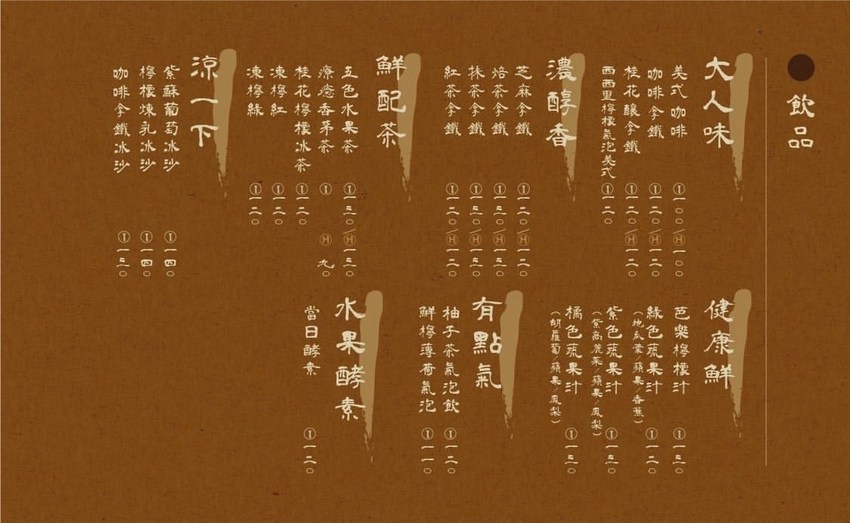 飲品
大人味
美式咖啡 Ⓘ一〇〇/Ⓗ一〇〇
咖啡拿鐵 Ⓘ一二〇/Ⓗ一二〇
桂花釀拿鐵 Ⓘ一二〇/Ⓗ一二〇
西西里檸檬氣泡美式 Ⓘ一二〇
濃醇香
芝麻拿鐵 Ⓘ一二〇/Ⓗ一二〇
焙茶拿鐵 Ⓘ一二〇/Ⓗ一二〇
抹茶拿鐵 Ⓘ一二〇/Ⓗ一二〇
紅茶拿鐵 Ⓘ一二〇/Ⓗ一二〇
鮮配茶
五色水果茶 Ⓘ一三〇/Ⓗ一三〇
療癒香茅茶 Ⓘ Ⓗ九〇
桂花檸檬冰茶 Ⓘ一二〇
凍檸紅 Ⓘ一二〇
凍檸綠 Ⓘ一二〇
涼一下
紫蘇葡萄冰沙 Ⓘ一四〇
檸檬煉乳冰沙 Ⓘ一四〇
咖啡拿鐵冰沙 Ⓘ一三〇
健康鮮
芭樂檸檬汁 Ⓘ一三〇
綠色蔬果汁 Ⓘ一三〇
(地瓜葉/蘋果/香蕉)
紫色蔬果汁 Ⓘ一三〇
(紫高麗菜/蘋果/鳳梨)
橘色蔬果汁 Ⓘ一三〇
(胡蘿蔔/蘋果/鳳梨)
有點氣
柚子茶氣泡飲 Ⓘ一二〇
鮮檸薄荷氣泡 Ⓘ一一〇
水果酵素
當日酵素 Ⓘ一二〇